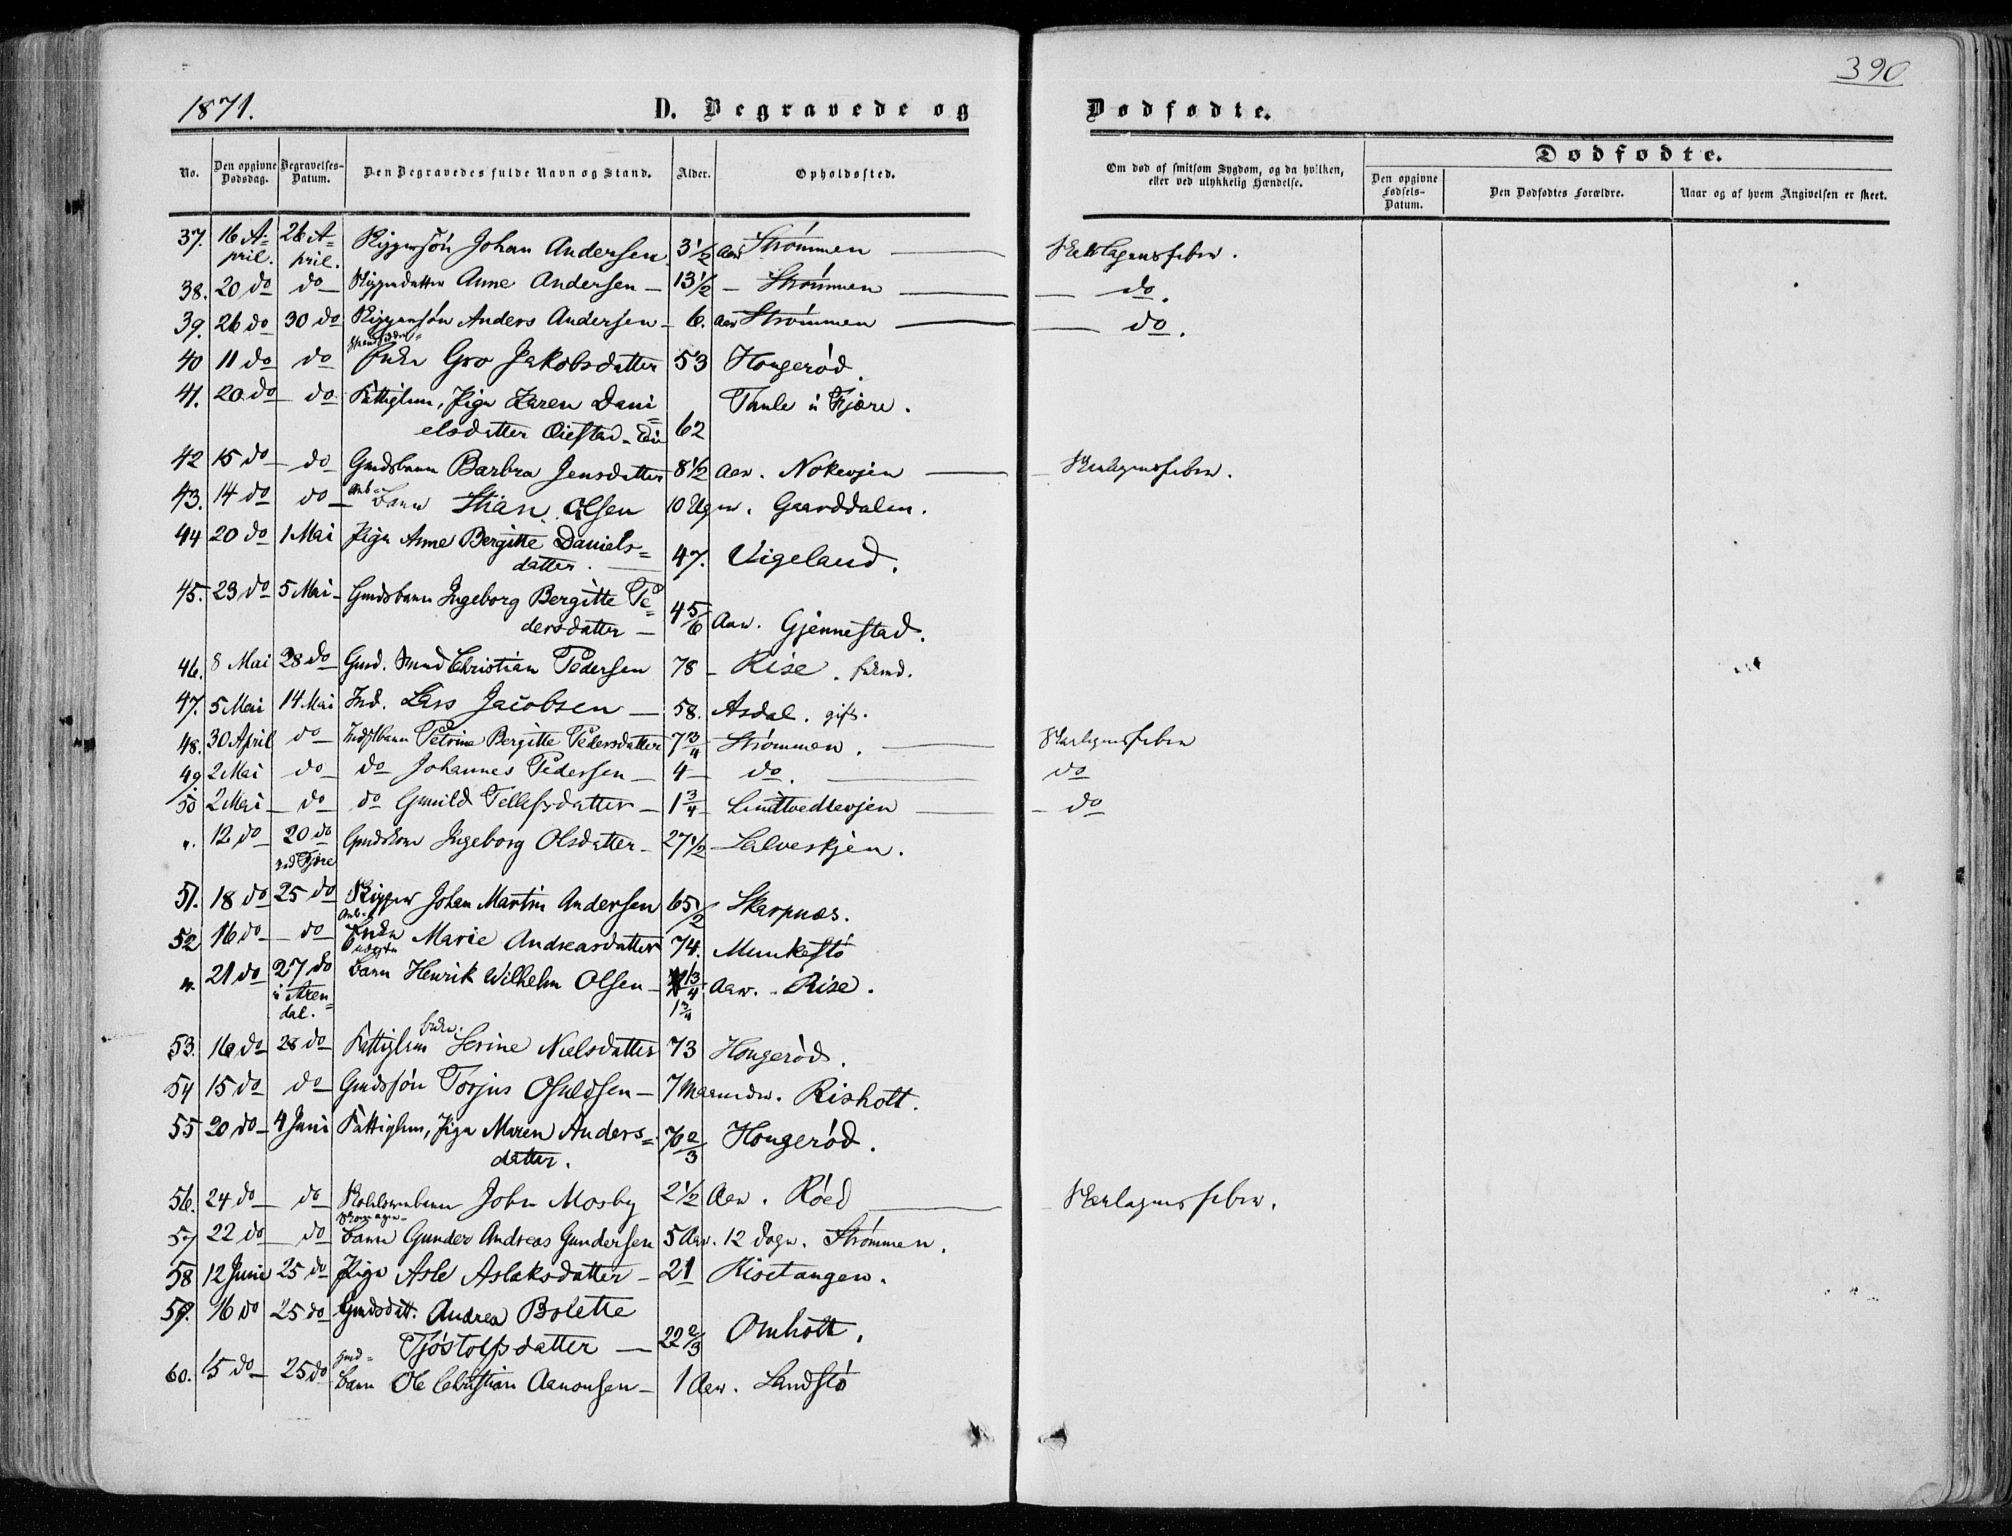 390
1871.
D. Begravede og Dødfødte.
No.
Den opgivne Dødsdag.
Begravelses-Datum.
Den Begravedes fulde Navn og Stand.
Alder.
Opholdssted.
Om død af smitsom Sygdom, og da hvilken, eller ved ulykkelig Hændelse.
Dødfødte.
Den opgivne Fødsels-Datum.
Den Dødfødtes Forældre.
Naar og af hvem Angivelsen er skeet.
37. 16 April. 26 April. Riggersøn Johan Andersen 3 1/2 Aar Strømmen — Skarlagensfeber.
38. 20 do do Riggerdatter Anne Andersen — 13 1/2 — Strømmen — do.
39. 26 do 30 do Riggersøn Anders Andersen — 6. Aar Strømmen — do.
40 11 do do Enke Gro Jakobsdatter 53 Hougerød.
41. 20 do do Fattiglem, Pige Karen Dani=
elsdatter Øiestad 62 Taule i Fjære.
42 15 do do Gmdsbarn Barbra Jensdatter 8 1/2 Aar. Nokevjen — Skarlagensfeber.
43. 14 do do Barn Stian Olsen 10 Uger. Gaarddalen.
44 20 do 1 Mai Pige Anne Bergitte Daniels=
datter. 47. Vigeland.
45. 23 do 5 Mai Gmdsbarn Ingeborg Bergitte Pe=
dersdatter — 4 5/6 Aar. Gjennestad.
46. 8 Mai 28 do Gmd. Christian Pedersen 78 — Rise.
47. 5 Mai 14 Mai Ind. Lars Jacobsen — 58. Asdal. gift.
48. 30 April do Petrine Bergitte Pedersdatter 7 3/4 Strømmen. — Skarlagensfeber
49. 2 Mai do do Johannes Pedersen — 4 — do. — do
50 2 Mai do do Gunild Tellefsdatter — 1 3/4 Lundtvedtevjen — do
". 12 do 20 do ved Fjære Gmdskone Ingeborg Olsdatter — 27 1/2 Salveskjen.
51. 18 do 25 do Rigger Johan Martin Andersen 65 1/2 Skarpnæs.
52 16 do do Enke Marie Andreasdatter 74. Munkestø
". 21 do 27 do i Aren=
dal. Barn Henrik Wilhelm Olsen — 1 3/4 Aar. Rise.
1 3/4
53. 16 do 28 do Fattiglem Enke. Serine Nielsdatter 73 Hougerød.
54 15 do do Gmdssøn Torjus Osuldsen — 7 Maaneder. Risholt.
55 20 do 4 Juni Fattiglem, Pige Maren Anders=
datter. 76 2/3 Hougerød.
56. 24 do do John Mosby 2 1/2 Aar. Røed — Skarlagensfeber.
57 22 do do Barn Gunder Andreas Gundersen 5 Aar. 12 Dage. Strømmen.
58 12 Juni 25 do Pige Asle Aslaksdatter — 21 Risetangen.
59. 16 do 25 do Gmdsdatt. Andrea Bolette
Tjøstolfsdatter — 22 2/3 Omholt.
60. 15 do 25 do Gmd= Barn Ole Christian Aanonsen — 1 Aar. Sandstø